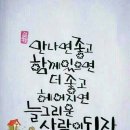 만나면 좋고
함께있으면
더 좋고
헤어지면
늘그리운
사람이 되자